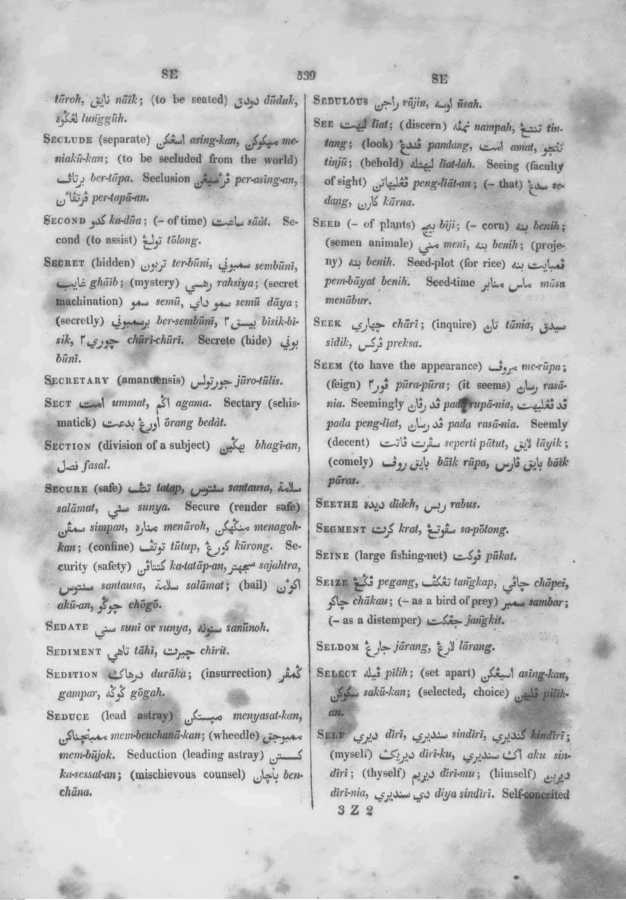 SE 539 SE
tāroh, نايق nāik; (to be seated) دودق dūduk,
لڠگوه lungguh.
SECLUDE (separate) اسيڠكن asing-kan, me-
niakū-kan; (to be secluded from the world)
برتاڤ ber-tāpa. Seclusion per-asing-an,
per-tapā-an.
SECOND كدو ka-dūa; (– of time) ساعت sāāt. Se-
cond (to assist) تولڠ tōlong.
SECRET (hidden) تربون ter-būni, سمبوني sembūni,
غايب ghāib; (mystery) رهسي rahsīya; (secret
machination) سمو semū, سمو داي semū dāya;
(secretly) برسمبوني ber-sembūnī, بيسق٢ bisik-bi-
sik, چوري٢ chūri-chūri. Secrete (hide) بوني
būni.
SECRETARY (amanuensis) جورتولس jūro-tūlis.
SECT امت ummat, اڬم agama. Sectary (schis-
matick) اورڠ بدعت ōrang bedât.
SECTION (division of a subject) بهڬين bhagī-an,
فصل fasal.
SECURE (safe) تتڤ tatap, سنتوس santausa, سلامة
salāmat, سني sunya. Secure (render safe)
سمڤن simpan, مناره menāroh, منڬهكن menagoh-
kan; (confine) توتڤ tūtup, كورڠ kūrong. Se-
curity (safety) كتتاڤن ka-tatāp-an, سجهتر sajahtra,
سنتوس santausa, سلامة salāmat; (bail) اكون
akū-an, چوڬو chōgō.
SEDATE سني suni or sunya, سنونه sanūnoh.
SEDIMENT تاهي tāhi, چيرت chirit.
SEDITION درهاك durāka; (insurrection) ڬمڤر
gampar, ڬوڬه gōgah.
SEDUCE (lead astray) ميستكن menyasat-kan,
ممبنچناكن mem-benchanā-kan; (wheedle) ممبوجق
mem-būjok. Seduction (leading astray) كسستن
ka-sessat-an; (mischievous counsel) بنچان ben-
chāna.
SEDULOUS راجن rājin, اوسه ūsah.
SEE ليهت liat; (discern) نمڤه nampah, تنتڠ tin-
tang; (look) ڤندڠ pandang, امت amat, تنجو
tinjū; (behold) ليهتله liat-lah. Seeing (faculty
of sight) ڤڠليهاتن peng-liāt-an; (– that) سدڠ se-
dang, كارن kārna.
SEED (– of plants) بيجي biji; (– corn) بنه benih;
(semen animale) مني meni, بنه benih; (proje-
ny) بنه benih. Seed-plot (for rice) ڤمبايت بنه
pem-bāyat benih. Seed-time ماس منابر māsa
menābur.
SEEK چهاري chāri; (inquire) تان tānia, سيدق
sidik, ڤركس preksa.
SEEM (to have the appearance) مروڤ me-rūpa;
(feign) ڤور٢ pūra-pūra; (it seems) رسان rasā-
nia. Seemingly ڤد روڤان pada rupā-nia, ڤد ڤڠليهت
pada peng-liat, ڤد رسان pada rasā-nia. Seemly
(decent) سڤرت ڤاتت seperti pātut, لايق lāyik;
(comely) بايق روڤ bāik rūpa, بايق ڤارس bāik
pāras.
SEETHE ديده dideh, ربس rabus.
SEGMENT كرت krat, سڤوتڠ sa-pōtong.
SEINE (large fishing-net) ڤوكت pūkat.
SEIZE ڤڬڠ pegang, تڠكڤ tangkap, چاڤي chāpei,
چاكو chākau; (– as a bird of prey) سمبر sambar;
(– as a distemper) جڠكت jangkit.
SELDOM جارڠ jārang, لارڠ lārang.
SELECT ڤيله pilih; (set apart) اسيڠكن asing-kan,
سكوكن sakū-kan; (selected, choice) ڤليهن pilih-
an.
SELF ديري diri, سنديري sindiri, كنديري kindiri;
(myself) ديريك diri-ku, اك سنديري aku sin-
diri; (thyself) ديريم diri-mu; (himself) ديرين
diri-nia, دي سنديري diya sindiri. Self-conceited
3 Z 2